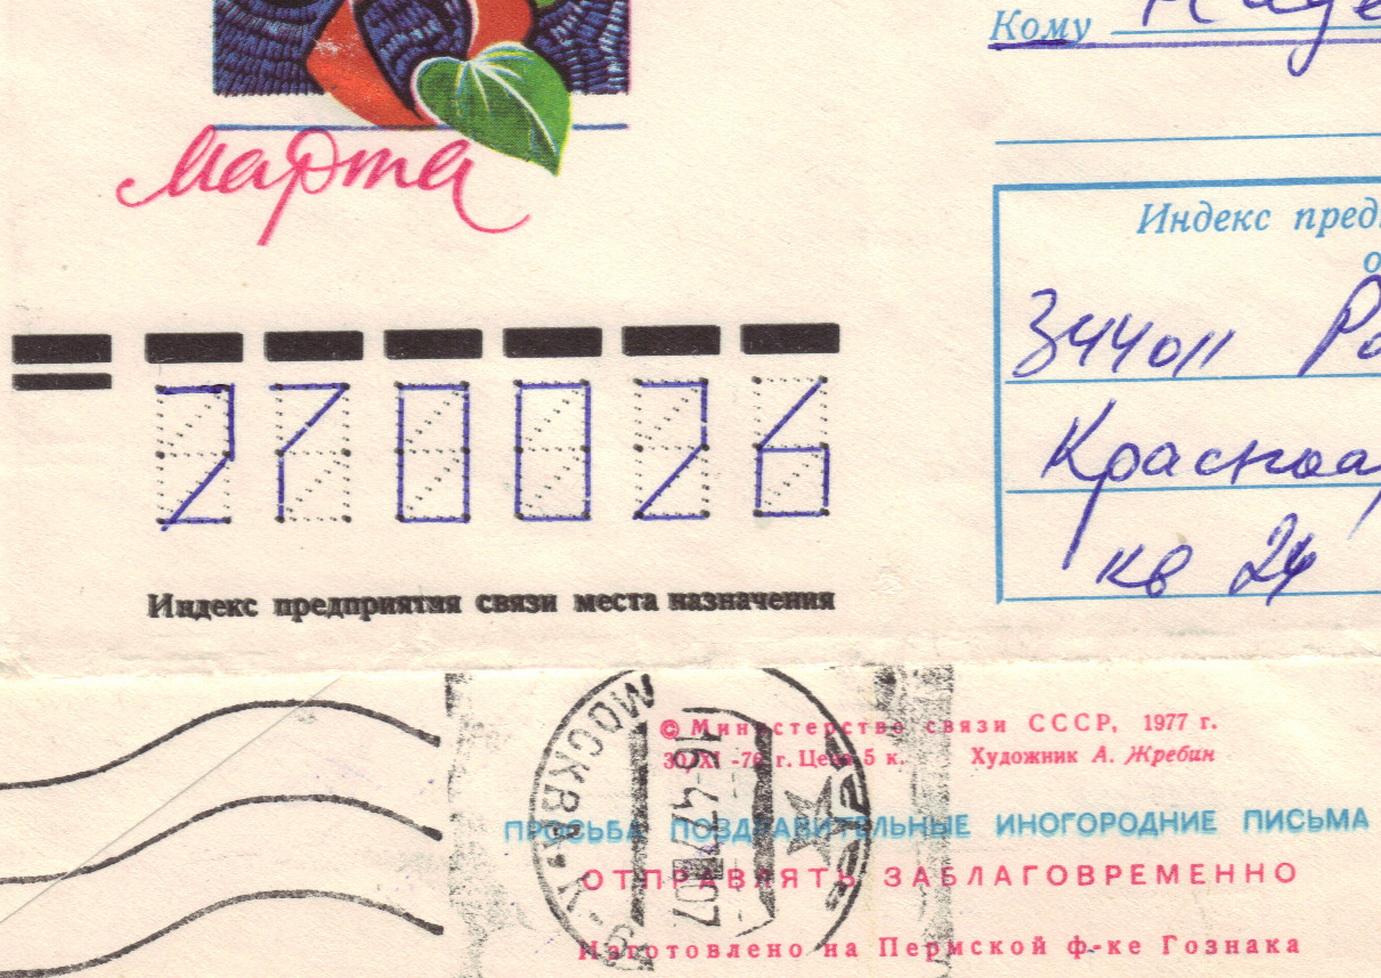 Кому
марта
Индекс
344011
270026
кв 24
Индекс предприятия связи места назначения
МОСКВА
© Министерство связи СССР, 1977 г.
30/XI -76 г. Цена 5 к. Художник А. Жребин
ПРОСЬБА ПОЗДРАВИТЕЛЬНЫЕ ИНОГОРОДНИЕ ПИСЬМА
ОТПРАВЛЯТЬ ЗАБЛАГОВРЕМЕННО
Изготовлено на Пермской ф-ке Гознака